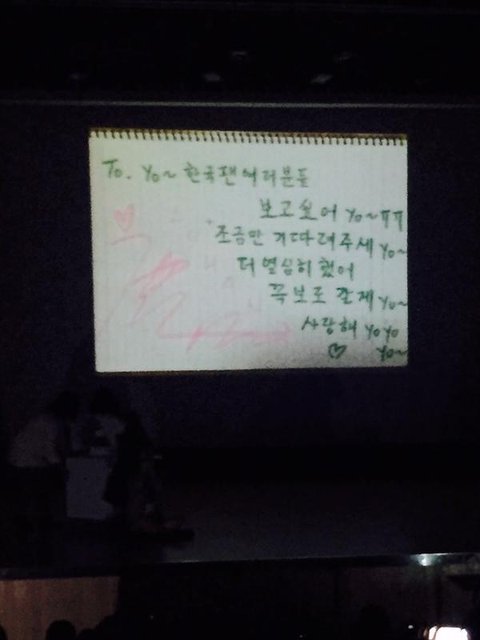 To. yo~ 한국팬여러분들
보고싶어 yo~ㅠㅠ
조금만 기다려주세 yo~
더 열심히 했어
꼭 보로 갈게 yo~
사랑해 yoyo
♡ yo~